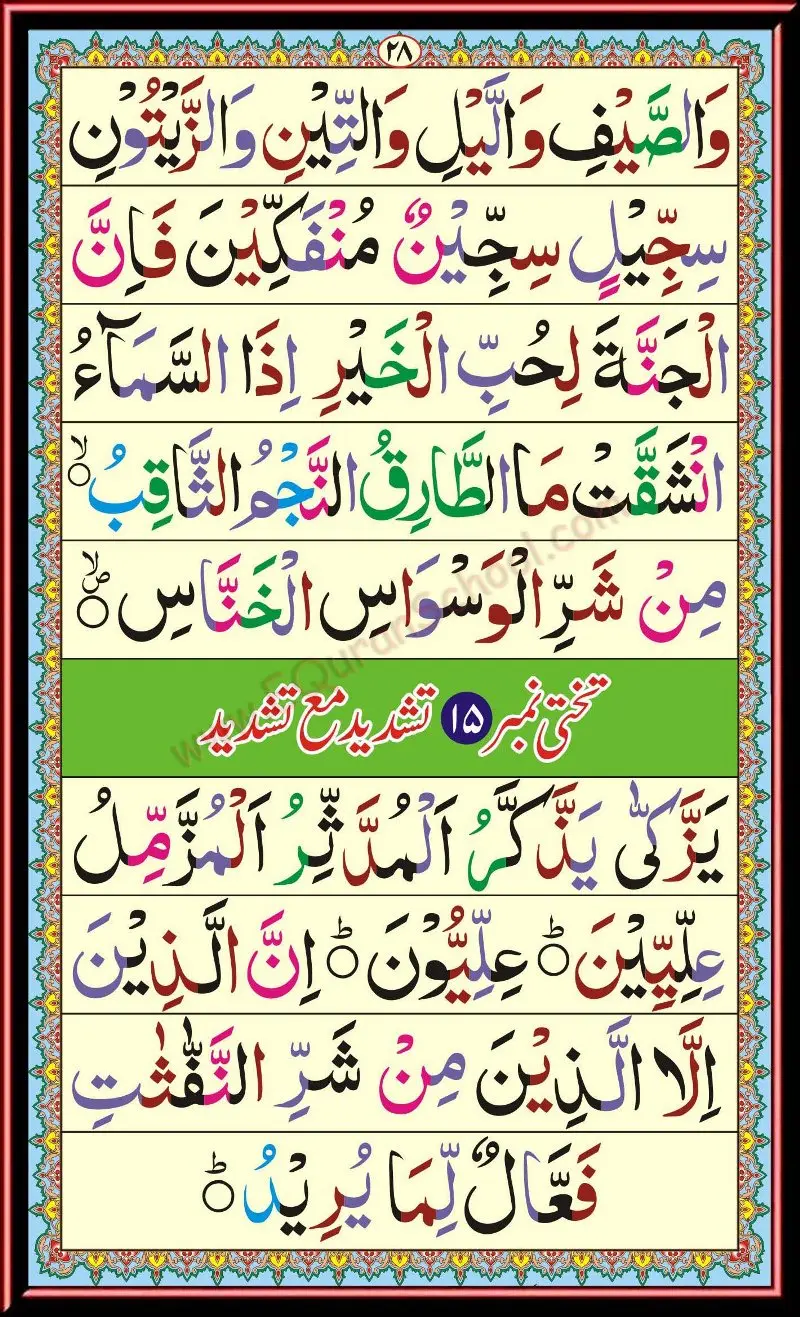 ٢٨
وَالصَّيْفِ وَالَّيْلِ وَالتِّيْنِ وَالزَّيْتُوْنِ
سِجِّيْلٍ سِجِّيْنٌ مُنْفَكِّيْنَ فَاِنَّ
الْجَنَّةَ لِحُبِّ الْخَيْرِ اِذَا السَّمَآءُ
انْشَقَّتْ مَا الطَّارِقُ النَّجْمُ الثَّاقِبُ ۙ
مِنْ شَرِّ الْوَسْوَاسِ الْخَنَّاسِ ۙ
www.eQuranSchool.com
تختی نمبر ۱۵ تشدید مع تشدید
يَزَّكّٰى يَذَّكَّرُ اَلْمُدَّثِّرُ اَلْمُزَّمِّلُ
عِلِّيِّيْنَ ؕ عِلِّيُّوْنَ ؕ اِنَّ الَّذِيْنَ
اِلَّا الَّذِيْنَ مِنْ شَرِّ النَّفّٰثٰتِ
فَعَّالٌ لِّمَا يُرِيْدُ ؕ